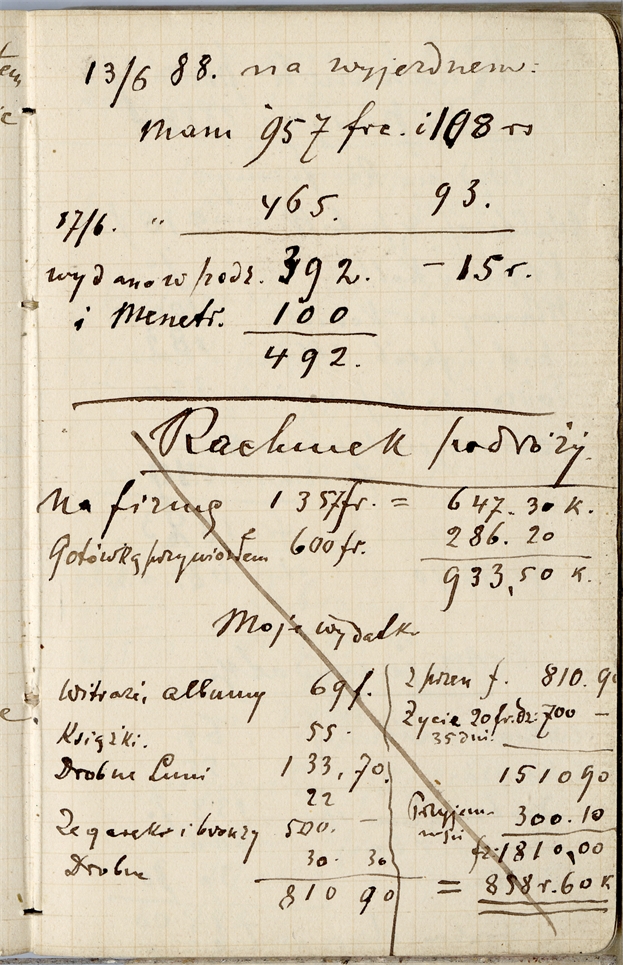 13/6 88. na wyjezdnem:
Mam 957 frc. i 108 rs
17/6. " 465. 93.
wydano w podr. 392. - 15 r.
i Menetr. 100
492.
Rachunek podróży
Na firmę 1357fr. = 647. 30 K.
Gotówką przywiozłem 600 fr. 286. 20
933,50 K.
Moje wydatki
Witraże, albumy 69 f.
Książki. 55.
Drobne Luni 133,70.
22
Zegarek i bronzy 500. —
Drobne 30. 30
810 90
Z przen f. 810.90
Życie 20 fr. dz. 700 —
35 dni.
1510 90
Przyjem-
ności 300.10
fr. 1810,00
= 858 r. 60 K